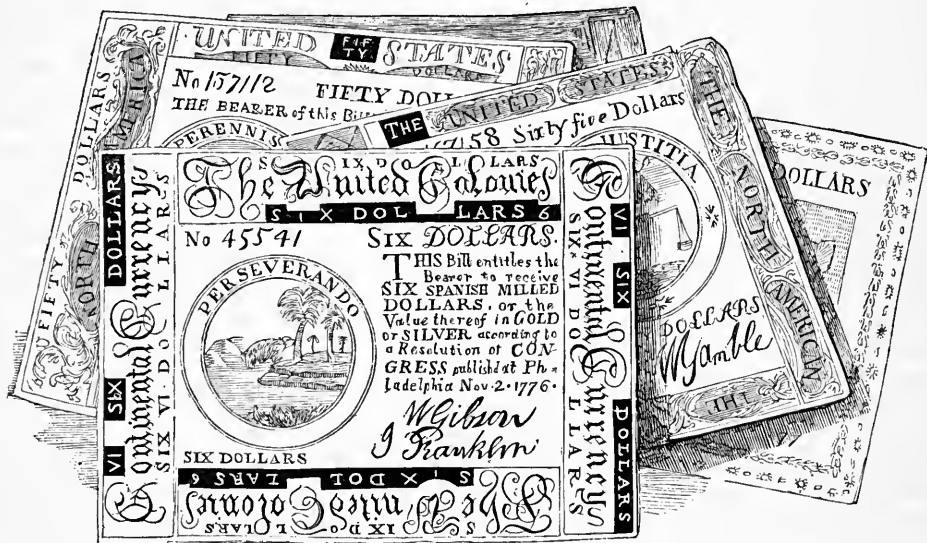 UNITED FIF TY STATES
FIFTY DOLLARS
No 157112 FIFTY DOLL
THE BEARER of this Bill
PERENNIS
DOLLARS
FIFTY
NORTH AMERICA
THE UNITED STATES
7158 Sixty five Dollars
JUSTITIA
THE NORTH AMERICAN
THE
DOLLARS
WGamble
DOLLARS
SIX DOLLARS
The United Colonies
SIX DOLLARS 6
No 45541 SIX DOLLARS.
PERSEVERANDO
THIS Bill entitles the
Bearer to receive
SIX SPANISH MILLED
DOLLARS, or the
Value thereof in GOLD
or SILVER according to
a Resolution of CON-
GRESS publishd at Ph-
ladelphia Nov. 2. 1776.
WGibson
J Franklin
SIX DOLLARS
VI SIX DOLLARS
Continental Currency
SIX VI DOLLARS
Continental Currency
SIX VI DOLLARS
VI SIX DOLLARS
SIX DOLLARS 6
The United Colonies
SIX DOLLARS